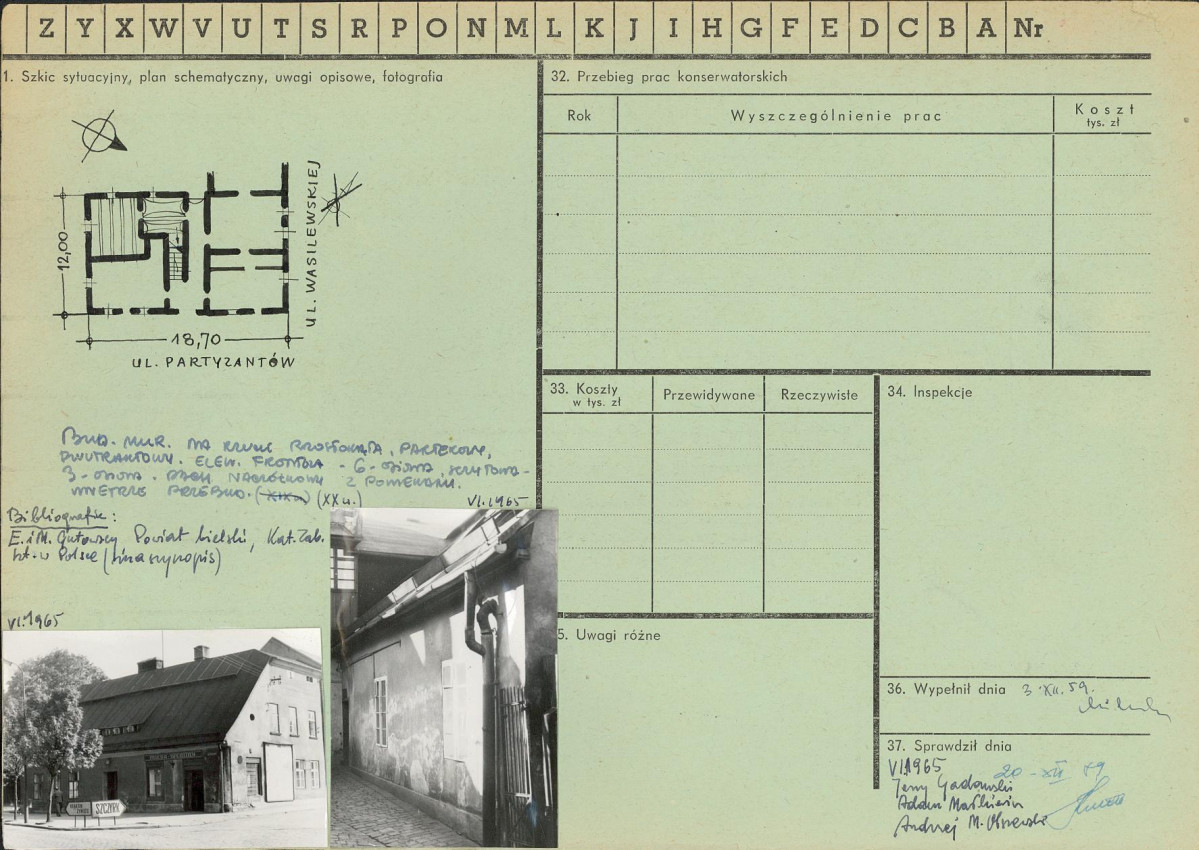 Z Y X W V U T S R P O N M L K J I H G F E D C B A Nr
1. Szkic sytuacyjny, plan schematyczny, uwagi opisowe, fotografia
12,00
18,70
UL. WASILEWSKIEJ
UL. PARTYZANTÓW
BUD. MUR. NA RZUCIE PROSTOKĄTA, PARTEROWY,
DWUTRAKTOWY. ELEW. FRONTOWA - 6-OSIOWA, SZCZYTOWA -
3-OSIOWA. DACH NACZÓŁKOWY Z POWIEKAMI.
WNĘTRZE PRZEBUD. (XIX w.) (XX w.)
VI.1965
Bibliografia:
E. i M. Gutowscy Powiat bielski, Kat. Zab.
Szt. w Polsce (maszynopis)
VI.1965
SZCZYRK
32. Przebieg prac konserwatorskich
Rok
Wyszczególnienie prac
Koszt
tys. zł
33. Koszty
w tys. zł
Przewidywane
Rzeczywiste
34. Inspekcje
5. Uwagi różne
36. Wypełnił dnia 3 XII. 59.
37. Sprawdził dnia
VI.1965
20-XII 59
Jerzy Gadomski
Adam Małkiewicz
Andrzej M. Olszewski